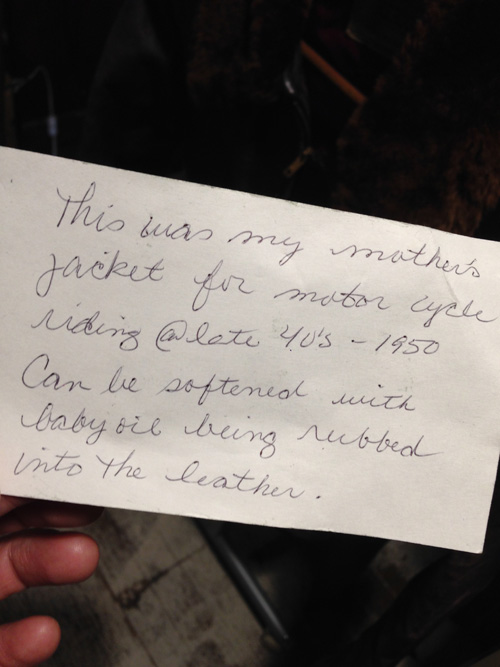 This was my mother's
jacket for motor cycle
riding @ late 40's - 1950
Can be softened with
baby oil being rubbed
into the leather.